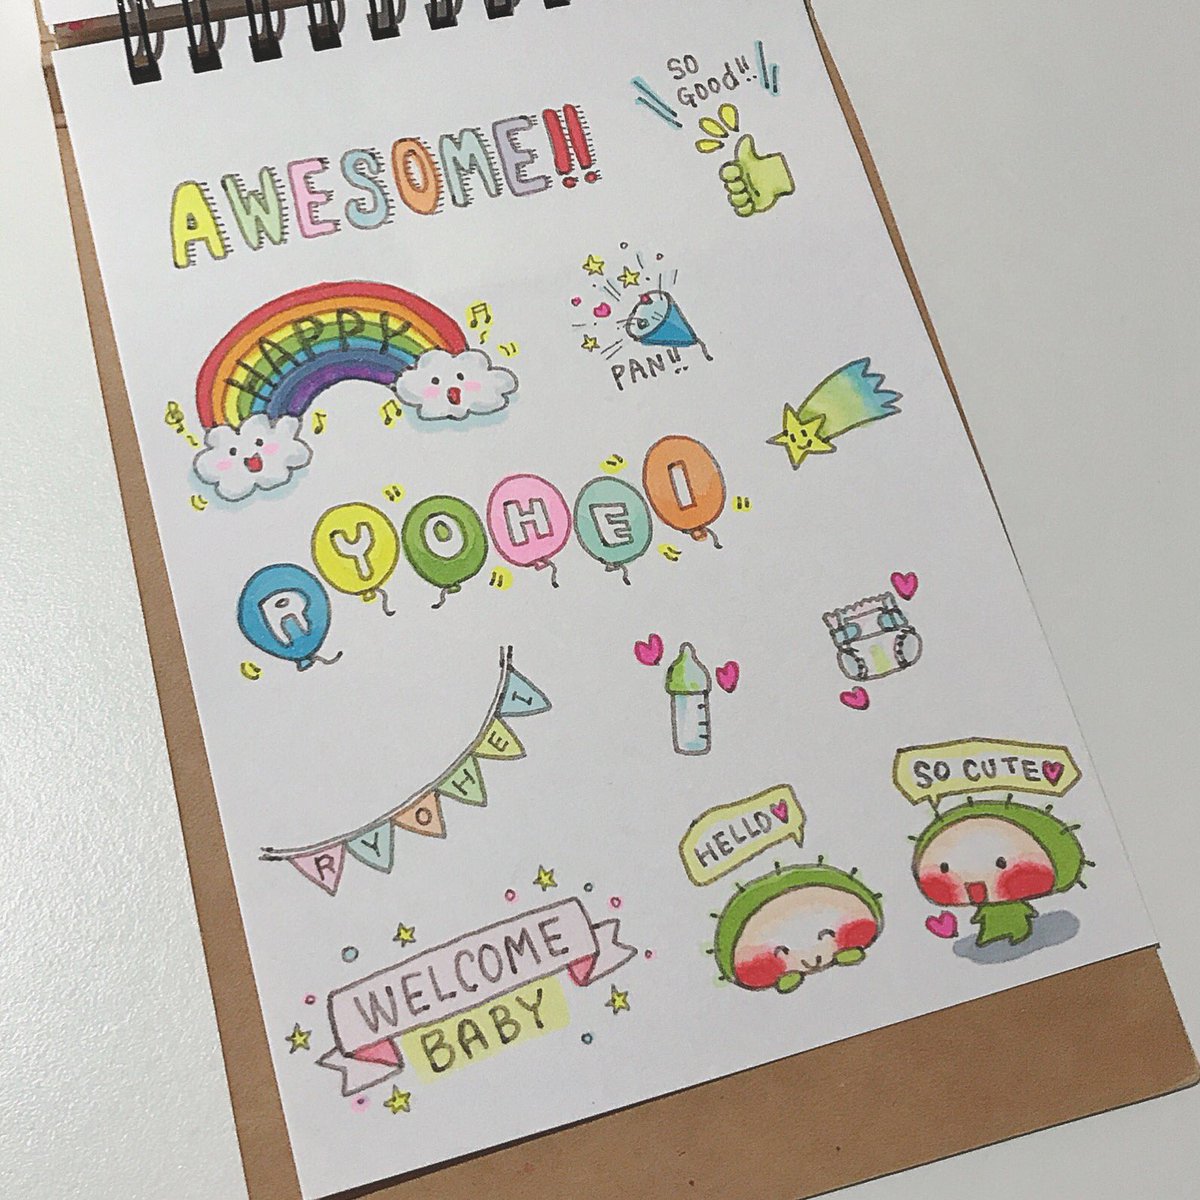 AWESOME!!
SO
GOOD!!
HAPPY
PAN!!
RYOHEI
RYOHEI
HELLO
SO CUTE
WELCOME
BABY